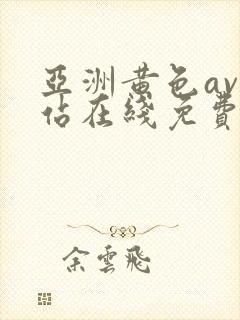 亞洲黃色av
佔在綫免費
余雲飛